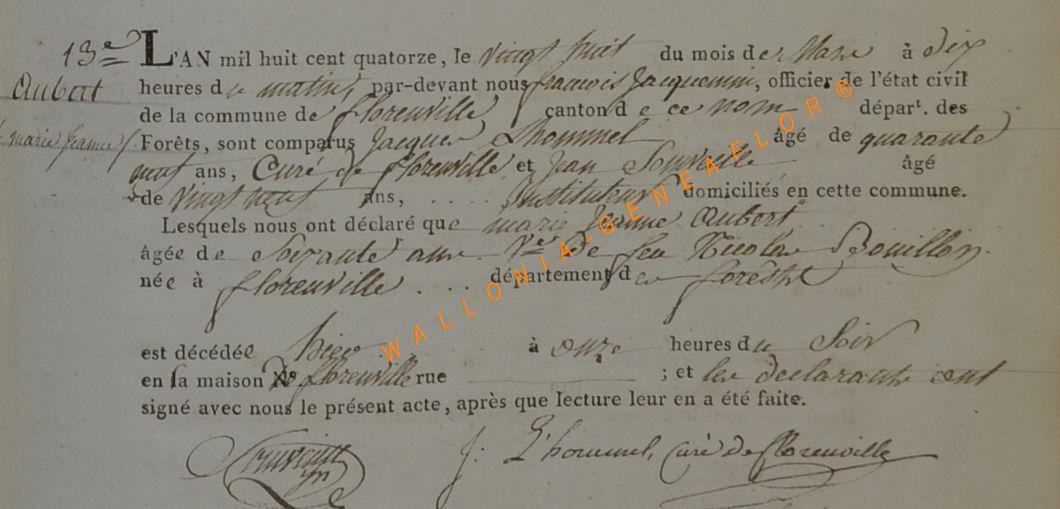 13e
Aubert
marie Jeanne
L'AN mil huit cent quatorze, le vingt huit du mois de Mars à dix
heures du matin, par-devant nous francois Jacquemin, officier de l'état civil
de la commune de florenville canton de ce nom départ. des
Forêts, sont comparus Jacques Lhommel âgé de quarante
neuf ans, Curé de florenville et Jean âgé
de vingt neuf ans, .... Instituteur domiciliés en cette commune.
Lesquels nous ont déclaré que marie Jeanne Aubert
âgée de Soixante ans Ve de feu Nicolas Bouillon
née à florenville .... département des forêts
est décédée hier à onze heures du Soir
en sa maison No florenville rue ; et les declarants ont
signé avec nous le présent acte, après que lecture leur en a été faite.
J: L'hommel, curé de florenville
WALLONIA-GENEAFLOR ®